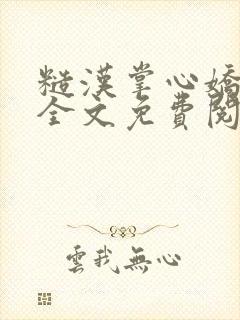 糙漢掌心嬌
全文免費閱
雲我無心